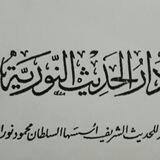 دار الحديث النورية
للحديث الشريف أسسها السلطان محمود نور ا